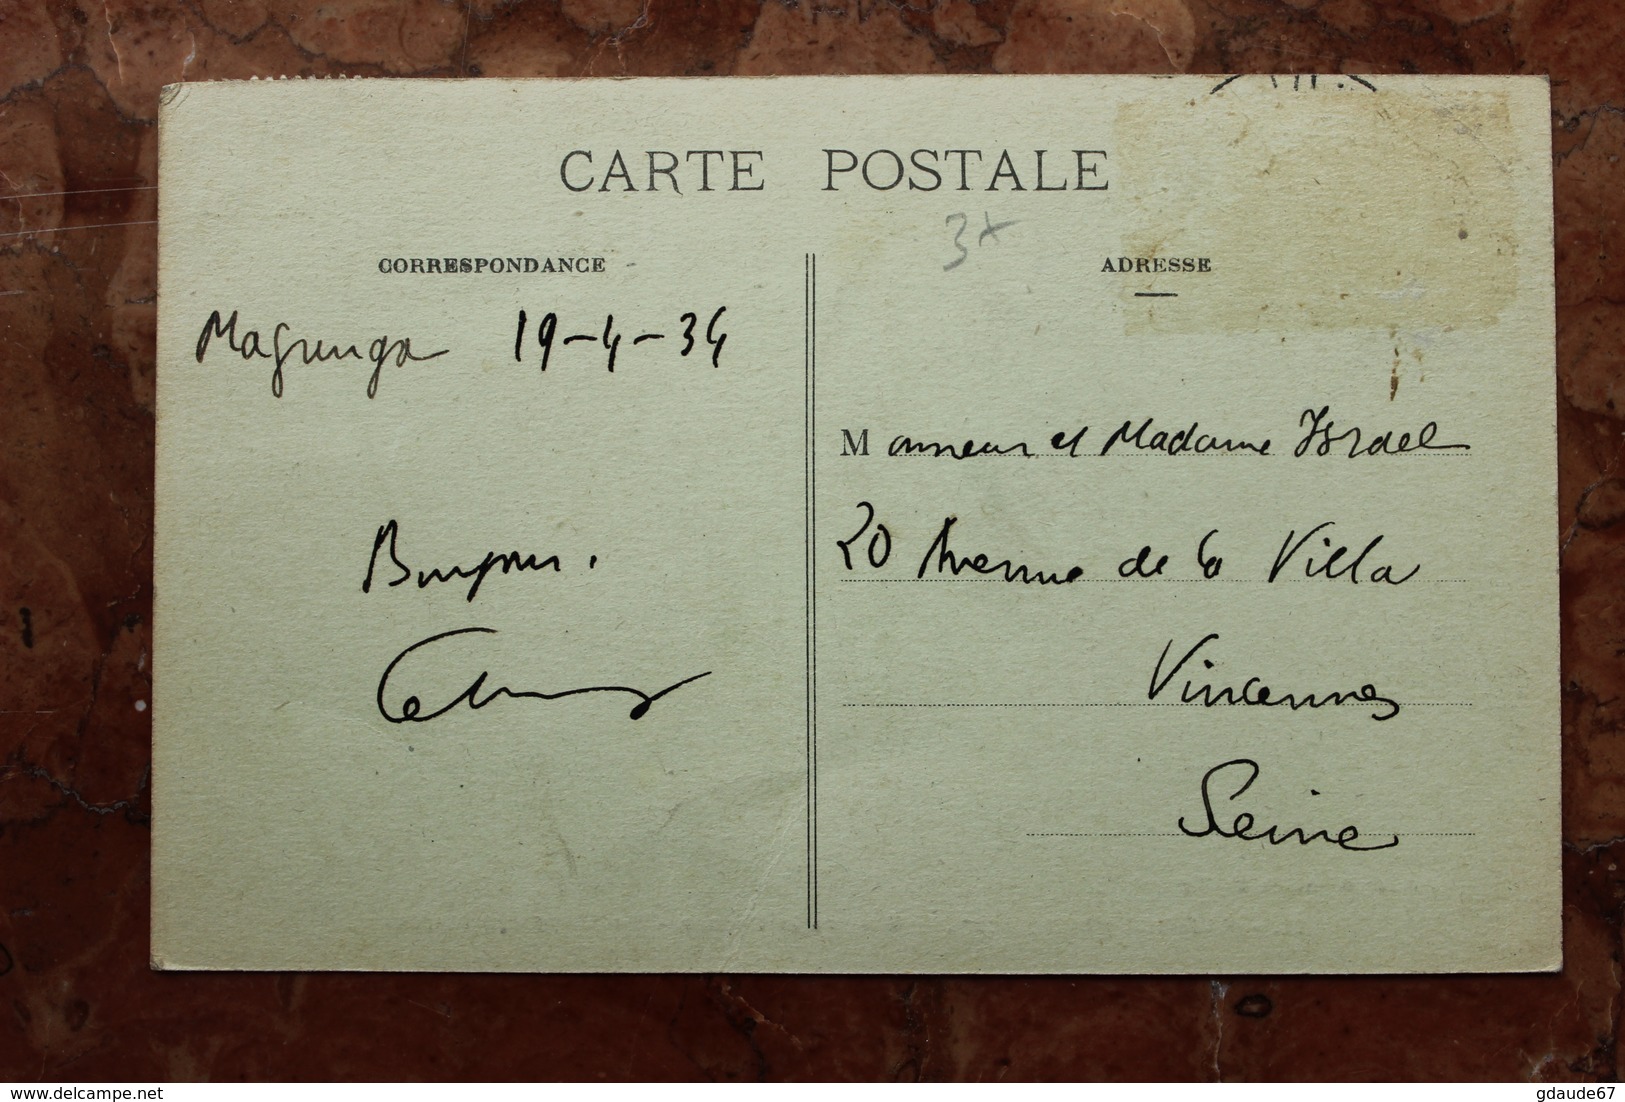 CARTE POSTALE
3x
CORRESPONDANCE
ADRESSE
Majunga 19-4-34
Bonjour.
Monsieur et Madame Israel
20 Avenue de la Villa
Vincennes
Seine
www.delcampe.net
gdaude67